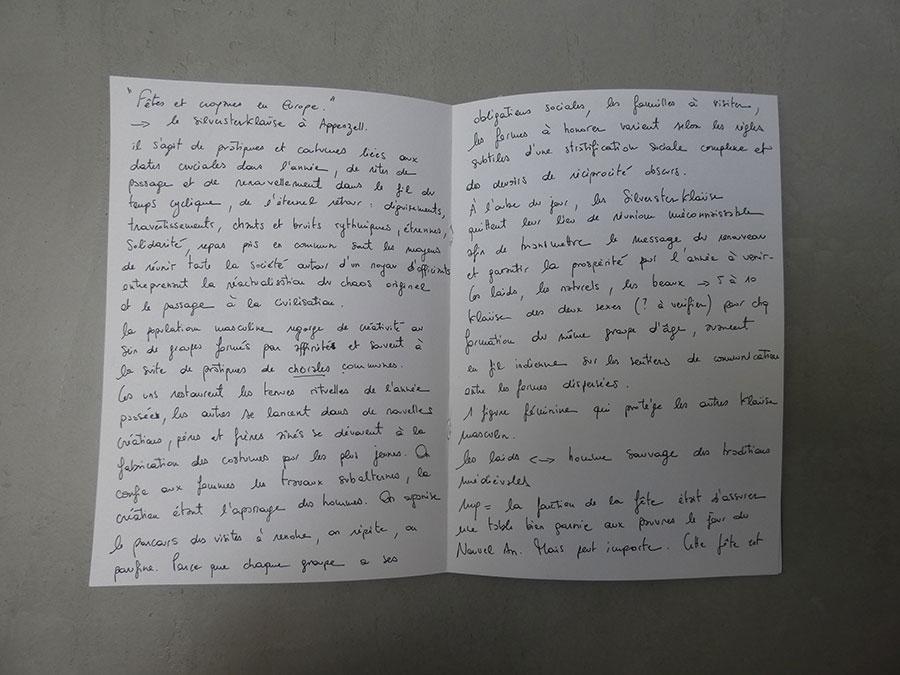 "Fêtes et croyances en Europe."
→ le Silvesterklaüse à Appenzell.
il s'agit de pratiques et coutumes liées aux
dates cruciales dans l'année, de rites de
passage et de renouvellement dans le fil du
temps cyclique, de l'éternel retour : déguisements,
travestissements, chants et bruits rythmiques, étrennes,
Solidarité, repas pris en commun sont les moyens
de réunir toute la société autour d'un noyau d'officiants
entreprenant la réactualisation du chaos originel
et le passage à la civilisation.
la population masculine regorge de créativité au
sein de groupes formés par affinités et souvent à
la suite de pratiques de chorales communes.
Les uns restaurent les tenues rituelles de l'année
passée, les autres se lancent dans de nouvelles
créations, pères et frères aînés se dévouent à la
fabrication des costumes par les plus jeunes. On
confie aux femmes les travaux subalternes, la
création étant l'apanage des hommes. On organise
le parcours des visites à rendre, on répète, on
peaufine. Parce que chaque groupe a ses
obligations sociales, les familles à visiter,
les fermes à honorer varient selon les règles
subtiles d'une stratification sociale complexe et
des devoirs de réciprocité obscurs.
À l'aube du jour, les Silvesterklaüse
quittent leur lieu de réunion méconnaissable
afin de transmettre le message du renouveau
et garantir la prospérité par l'année à venir.
Les laids, les naturels, les beaux → 5 à 10
Klaüse des deux sexes (? à vérifier) pour chq
formation du même groupe d'âge, avancent
en fil indienne sur les sentiers de communication
entre les fermes dispersées.
1 figure féminine qui protège les autres Klaüse
masculin.
les laids <--> homme sauvage des traditions
médiévales
hyp = la fonction de la fête était d'assurer
une table bien garnie aux pauvres le jour du
Nouvel An. Mais peut importe. Cette fête est